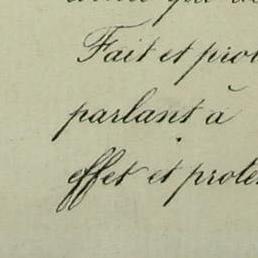 Fait et pro
parlant à
effet et protes